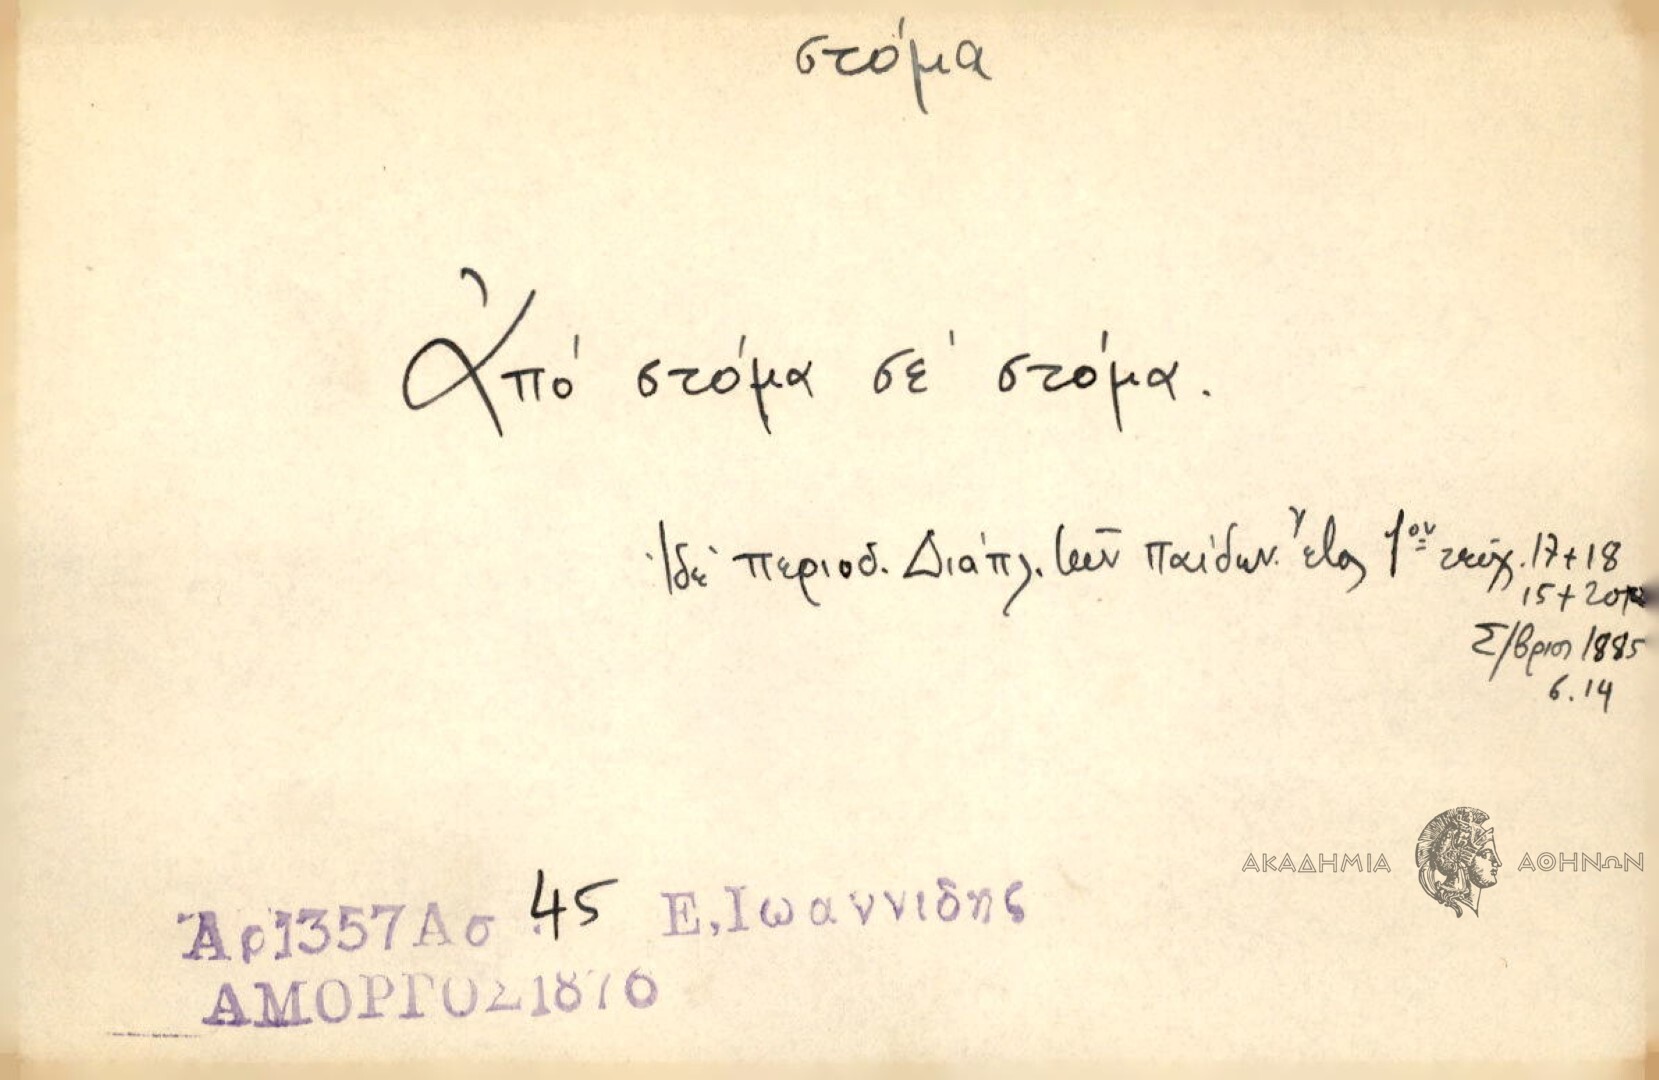 στόμα
Ἀπό στόμα σέ στόμα.
Ἰδέ περιοδ. Διάπλ. τῶν παίδων. ἔτος 1ον τεύχ. 17+18
15+20
Σ/βριος 1885
6.14
ΑΚΑΔΗΜΙΑ ΑΘΗΝΩΝ
Ἀρ1357Ασ 45 Ε,Ιωαννιδης
ΑΜΟΡΓΟΣ1876